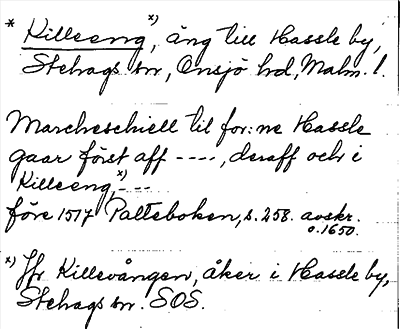 * Killeeng x), äng till Hassle by,
Stehags sn, Onsjö hd, Malm. l.
Marcheschiell til for:ne Hassle
gaar först aff ----, deraff och i
Killeeng, x) ---
före 1517 Palteboken, s. 258. avskr.
o. 1650.
x) Jfr Killevången, åker i Hassle by,
Stehags sn. SOS.